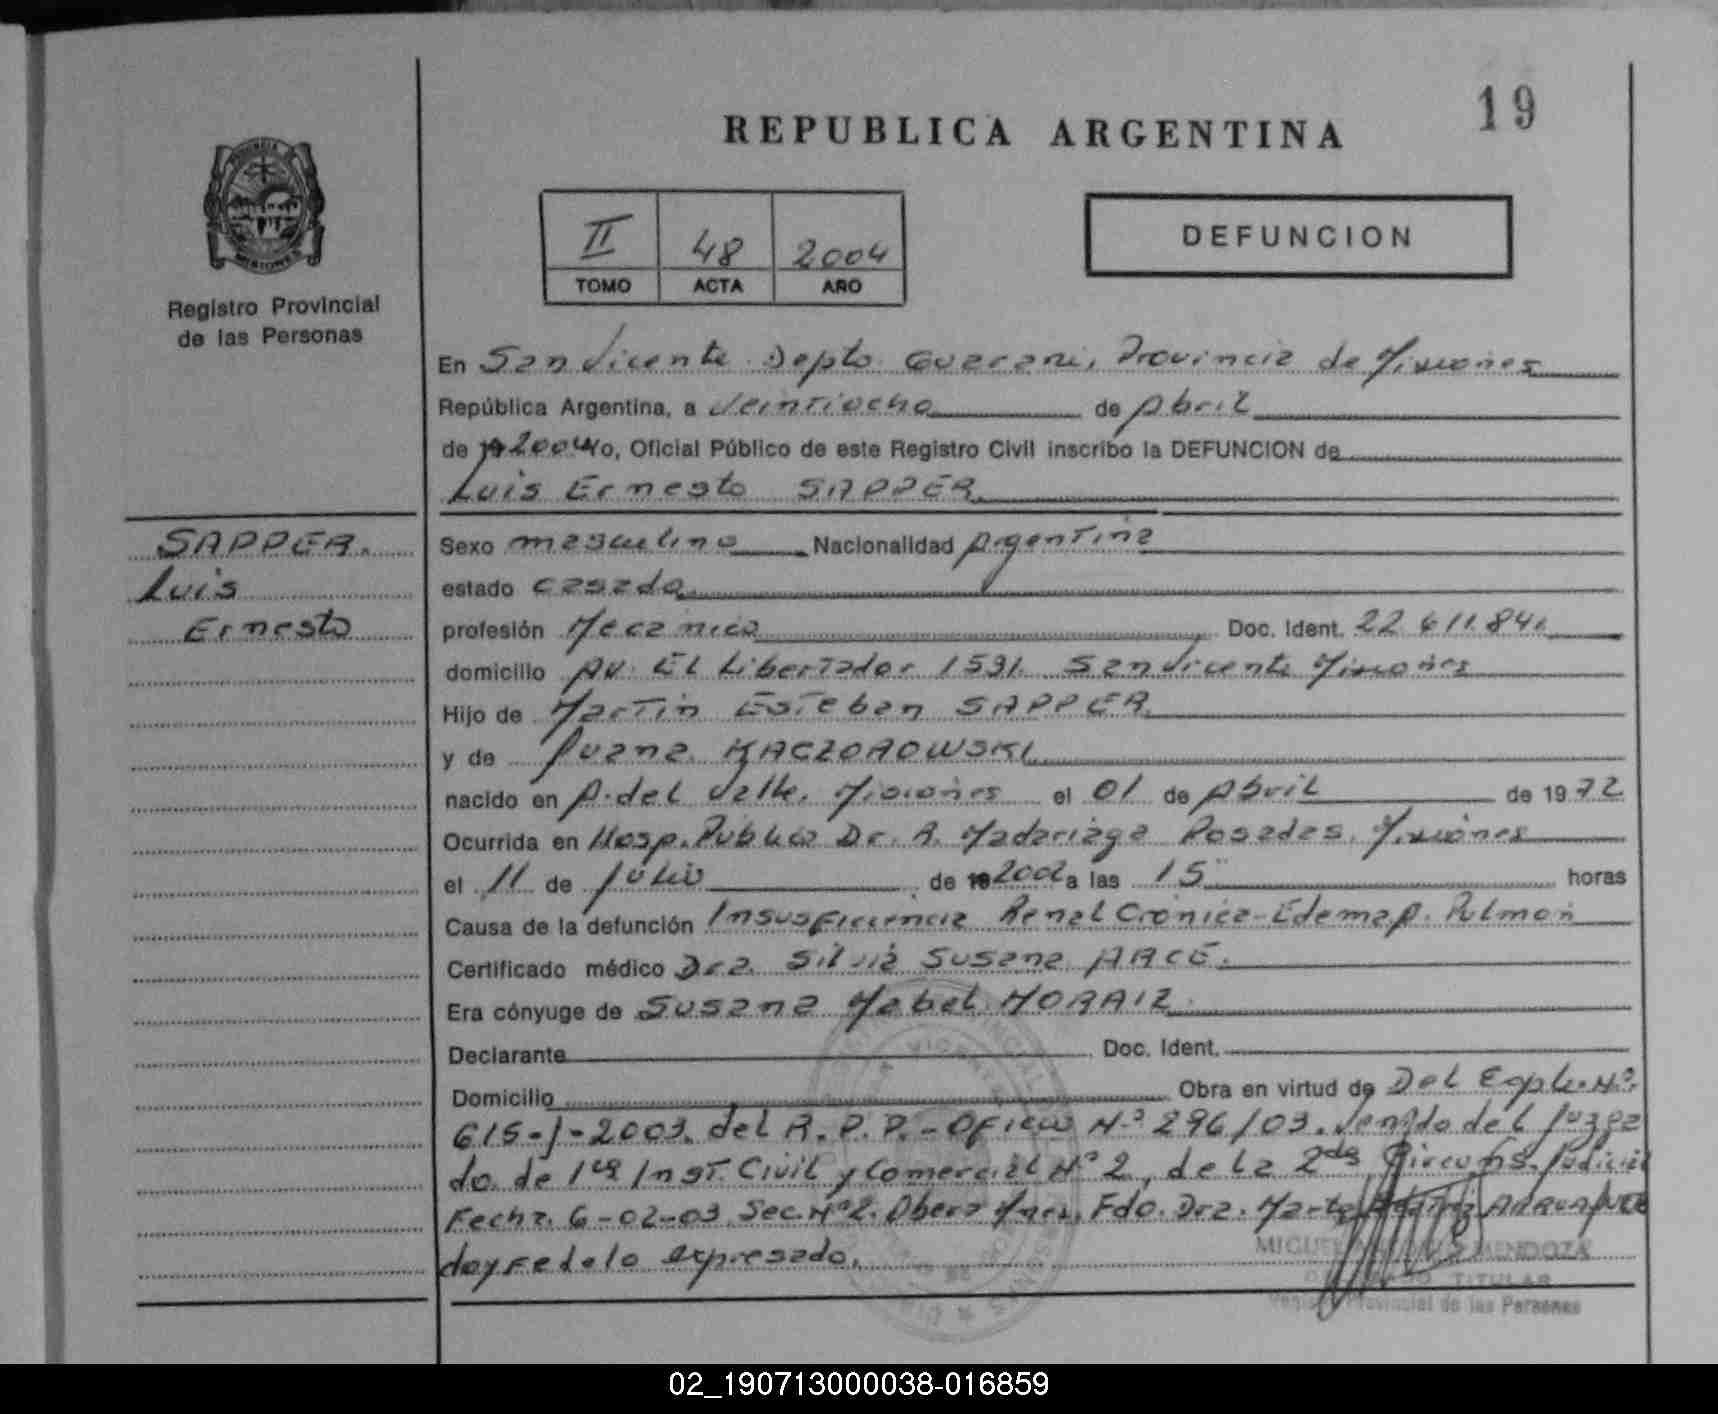 19
REPUBLICA ARGENTINA
PROVINCIA DE
MISIONES
Registro Provincial
de las Personas
II 48 2004
TOMO ACTA AÑO
DEFUNCION
En San Vicente Depto. Guarani, Provincia de Misiones
República Argentina, a Veintiocho de Abril
de 19 2004 Yo, Oficial Público de este Registro Civil inscribo la DEFUNCION de
Luis Ernesto SAPPER
SAPPER.
Luis
Ernesto
Sexo masculino Nacionalidad Argentina
estado casado
profesión Mecánico Doc. Ident. 22.611.841
domicilio Av. El Libertador 1531. San Vicente Misiones
Hijo de Martin Esteban SAPPER
y de Juana KACZOROWSKI
nacido en A. del Valle. Misiones el 01 de Abril de 1972
Ocurrida en Hosp. Público Dr. R. Madariaga Posadas. Misiones
el 11 de Julio de 19 2002 a las 15 horas
Causa de la defunción Insuficiencia Renal Crónica - Edema A. Pulmón
Certificado médico Dra. Silvia Susana ARCE.
Era cónyuge de Susana Mabel MORAIZ
Declarante Doc. Ident.
Domicilio Obra en virtud de Del Expte. Nº
615-J-2003. del R.P.P. - Oficio Nº 296/03. Venido del Juzga
do de 1ra Inst. Civil y Comercial Nº 2, de la 2da Circuns. Judicial
Fecha. 6-02-03. Sec. Nº 2. Obera Mnes. Fdo. Dra. Marta
doy fe de lo expresado.
MIGUEL MENDOZA
TITULAR
Registro Provincial de las Personas
02_190713000038-016859